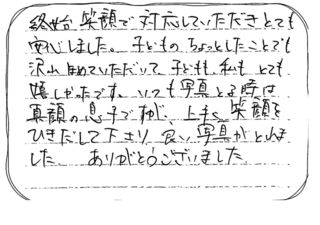 終始 笑顔で対応していただきとても
安心しました。子どものちょっとしたことでも
沢山ほめていただいて、子どもも私もとても
嬉しかったです。いつも写真とる時は
真顔の息子ですが、上手く笑顔を
ひきだして下さり、良い写真がとれま
した ありがとうございました